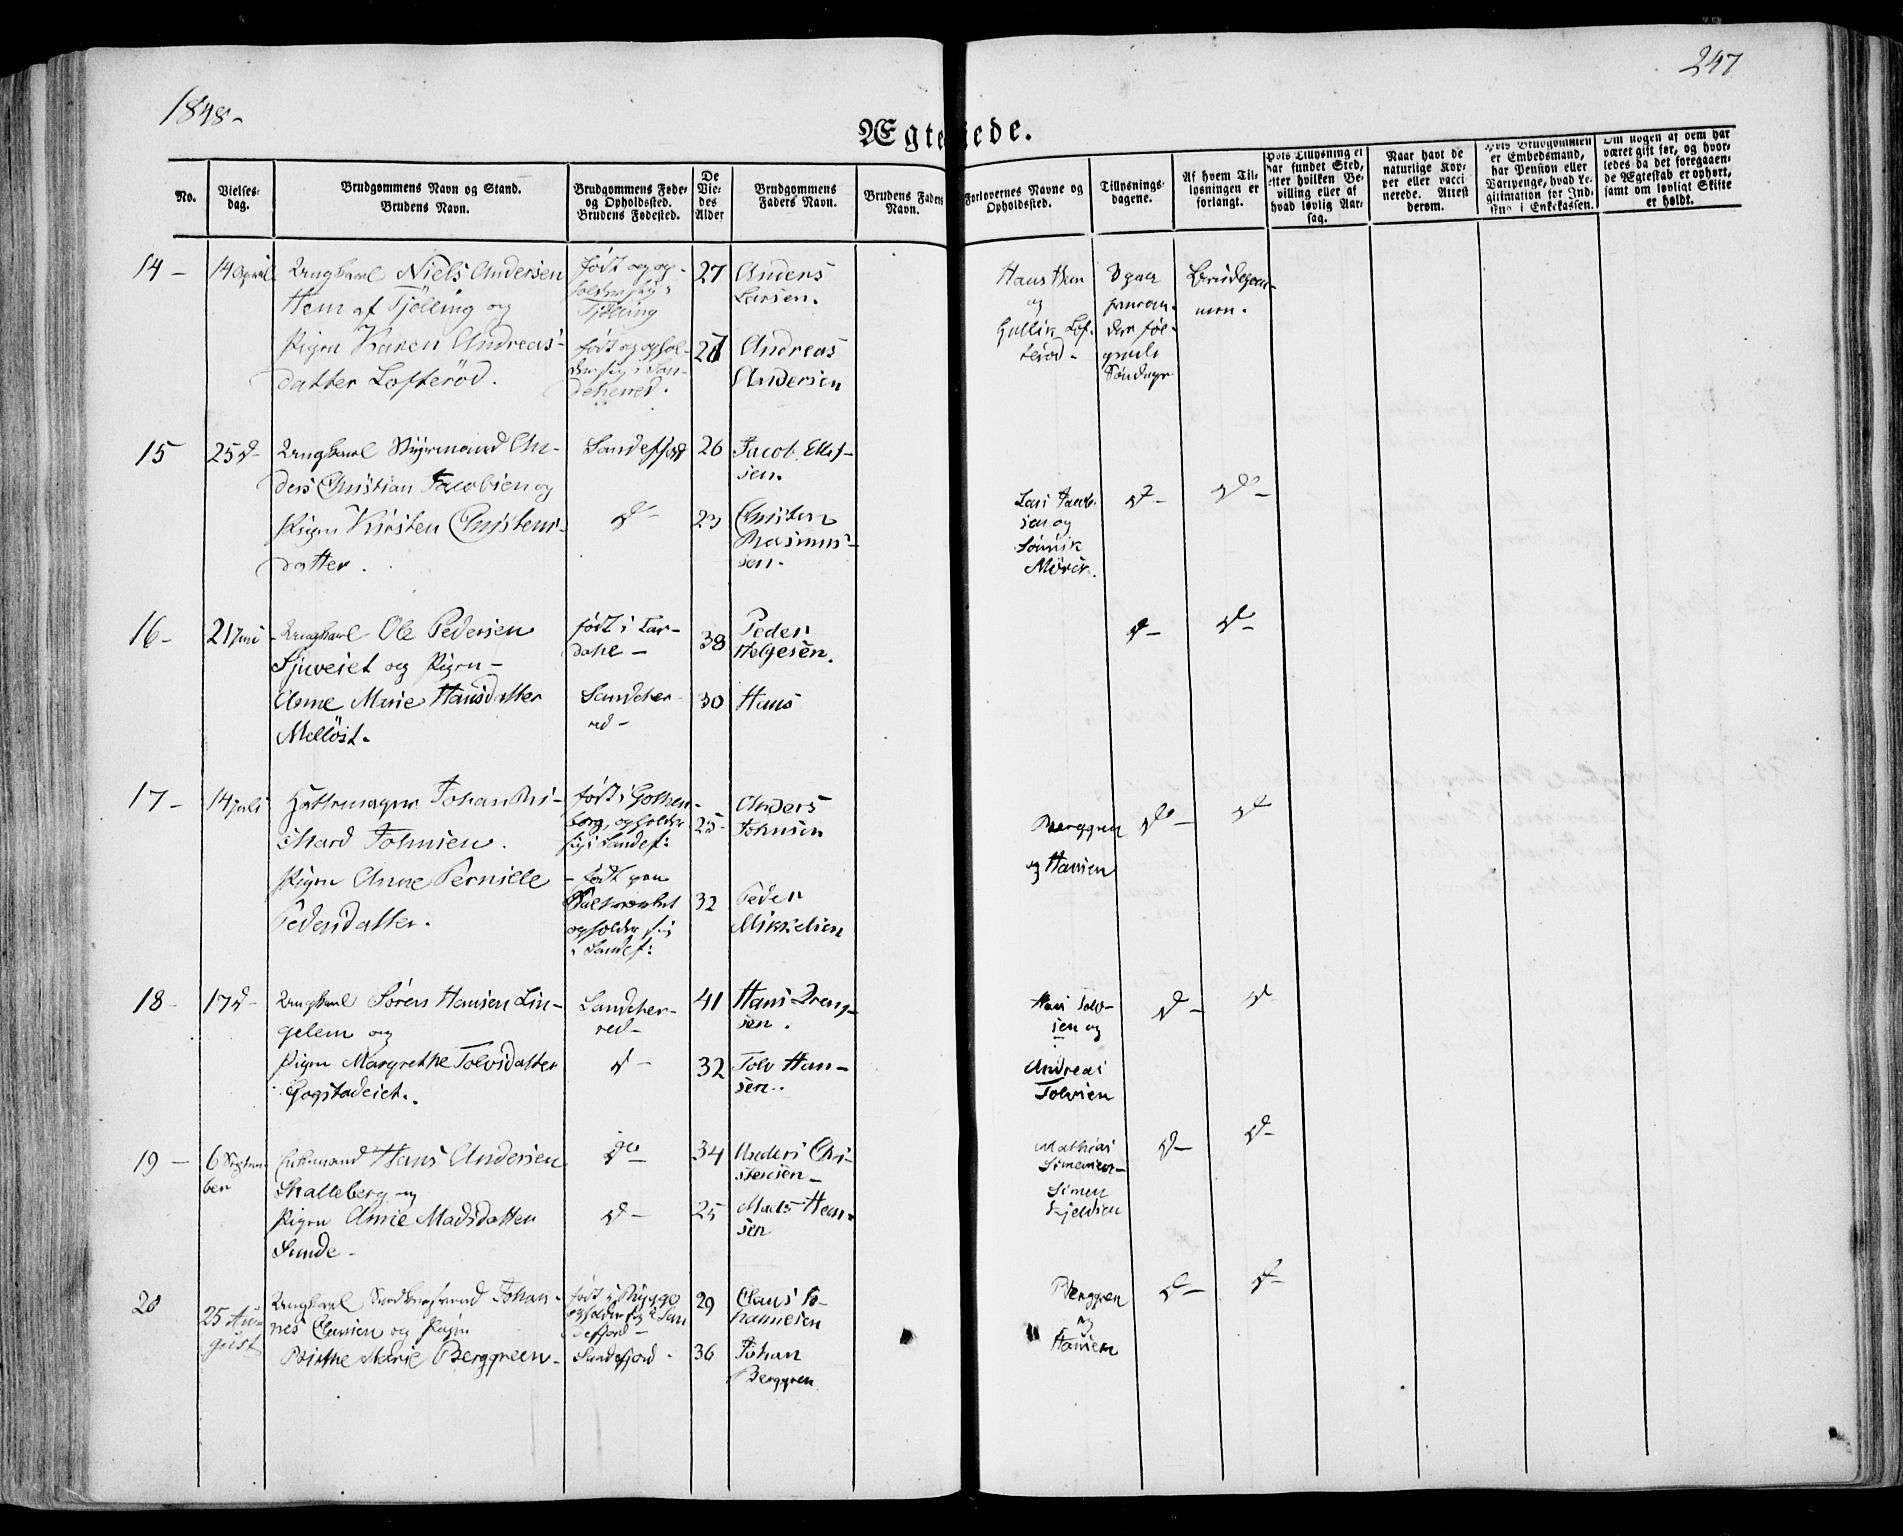 247
1848-
Ægteviede.
No.
Vielses-
dag.
Brudgommens Navn og Stand.
Brudens Navn.
Brudgommens Føde-
og Opholdssted.
Brudens Fødested.
De
Vie-
des
Alder
Brudgommens
Faders Navn.
Brudens Faders
Navn.
Forlovernes Navne og
Opholdssted.
Tillysnings-
dagene.
Af hvem Til-
lysningen er
forlangt.
Hvis Tillysning ei
har fundet Sted,
efter hvilken Be-
villing eller af
hvad lovlig Aar-
sag.
Naar havt de
naturlige Kop-
per eller vacci-
nerede. Attest
derom.
Hvis Brudgommen
er Embedsmand,
har Pension eller
Vartpenge, hvad Le-
gitimation for Ind-
skud i Enkekassen.
Om nogen af dem har
været gift før, og hvor-
ledes da det foregaaen-
de Ægteskab er ophørt,
samt om lovligt Skifte
er holdt.
14 -
14 April
Ungkarl Niels Andersen
Hem af Tjølling og
Pigen Karen Andreas-
datter Lofterød.
født og op-
holder sig i
Tjølling
født og ophol-
der sig i San-
deherred.
27
Anders
Larsen.
Andreas
Andersen
Hans Hem
og
Gullik Lof-
terød -
3 paa
hinan-
den føl-
gende
Søndage
Brudegom-
men.
15
25 d -
Ungkarl Styrmand An-
ders Christian Jacobsen og
Pigen Kirsten Christens-
datter.
Sandefjord
d -
26
23
Jacob Ellef-
sen.
Christen
Rasmus-
sen.
Lars Jacob-
sen og
d -
do -
16 -
21 Juni
Ungkarl Ole Pedersen
Sjuveiet og Pigen -
Anne Marie Hansdatter
Melløst.
født i Lar-
dahl -
Sandeher-
red -
38
30
Peder
Helgesen.
Hans
d -
d -
17 -
14 Juli
Hattemager Johan Ri-
chard Johnsen.
Pigen Anne Pernille
Pedersdatter.
født i Gothen-
borg, opholder
sig i Sandef:
- født paa
opholder sig
i Sandef:
25
32
Anders
Johnsen
Peder
Mikkelsen
Berggren
og Hansen
do -
d
18 -
17 d -
Ungkarl Søren Hansen Lin-
gelem og
Pigen Margrethe Tolvsdatter
Gogstadeiet.
Sandeher-
red -
d -
41
32
Hans Dreng-
sen.
Tolv Han-
sen.
Hans Tolv-
sen og
Andreas
Tolvsen
d -
d
19 -
6 Septem-
ber
Enkemand Hans Andersen
Skalleberg og
Pigen Anne Madsdatter
Sunde -
do
d -
34
25
Anders Chri-
stensen -
Mads Han-
sen
Mathias
Simensen -
Simen
Kjeldsen
d -
d -
20
25 Au-
gust
Ungkarl Johan-
nes Clausen og Pigen
Birthe Marie Berggreen -
født i Rygge
opholder sig i San
defjord -
Sandefjord -
29
36
Claus Jo-
hannesen
Johan
Berggren
Berggren
og
Hansen
d -
d -